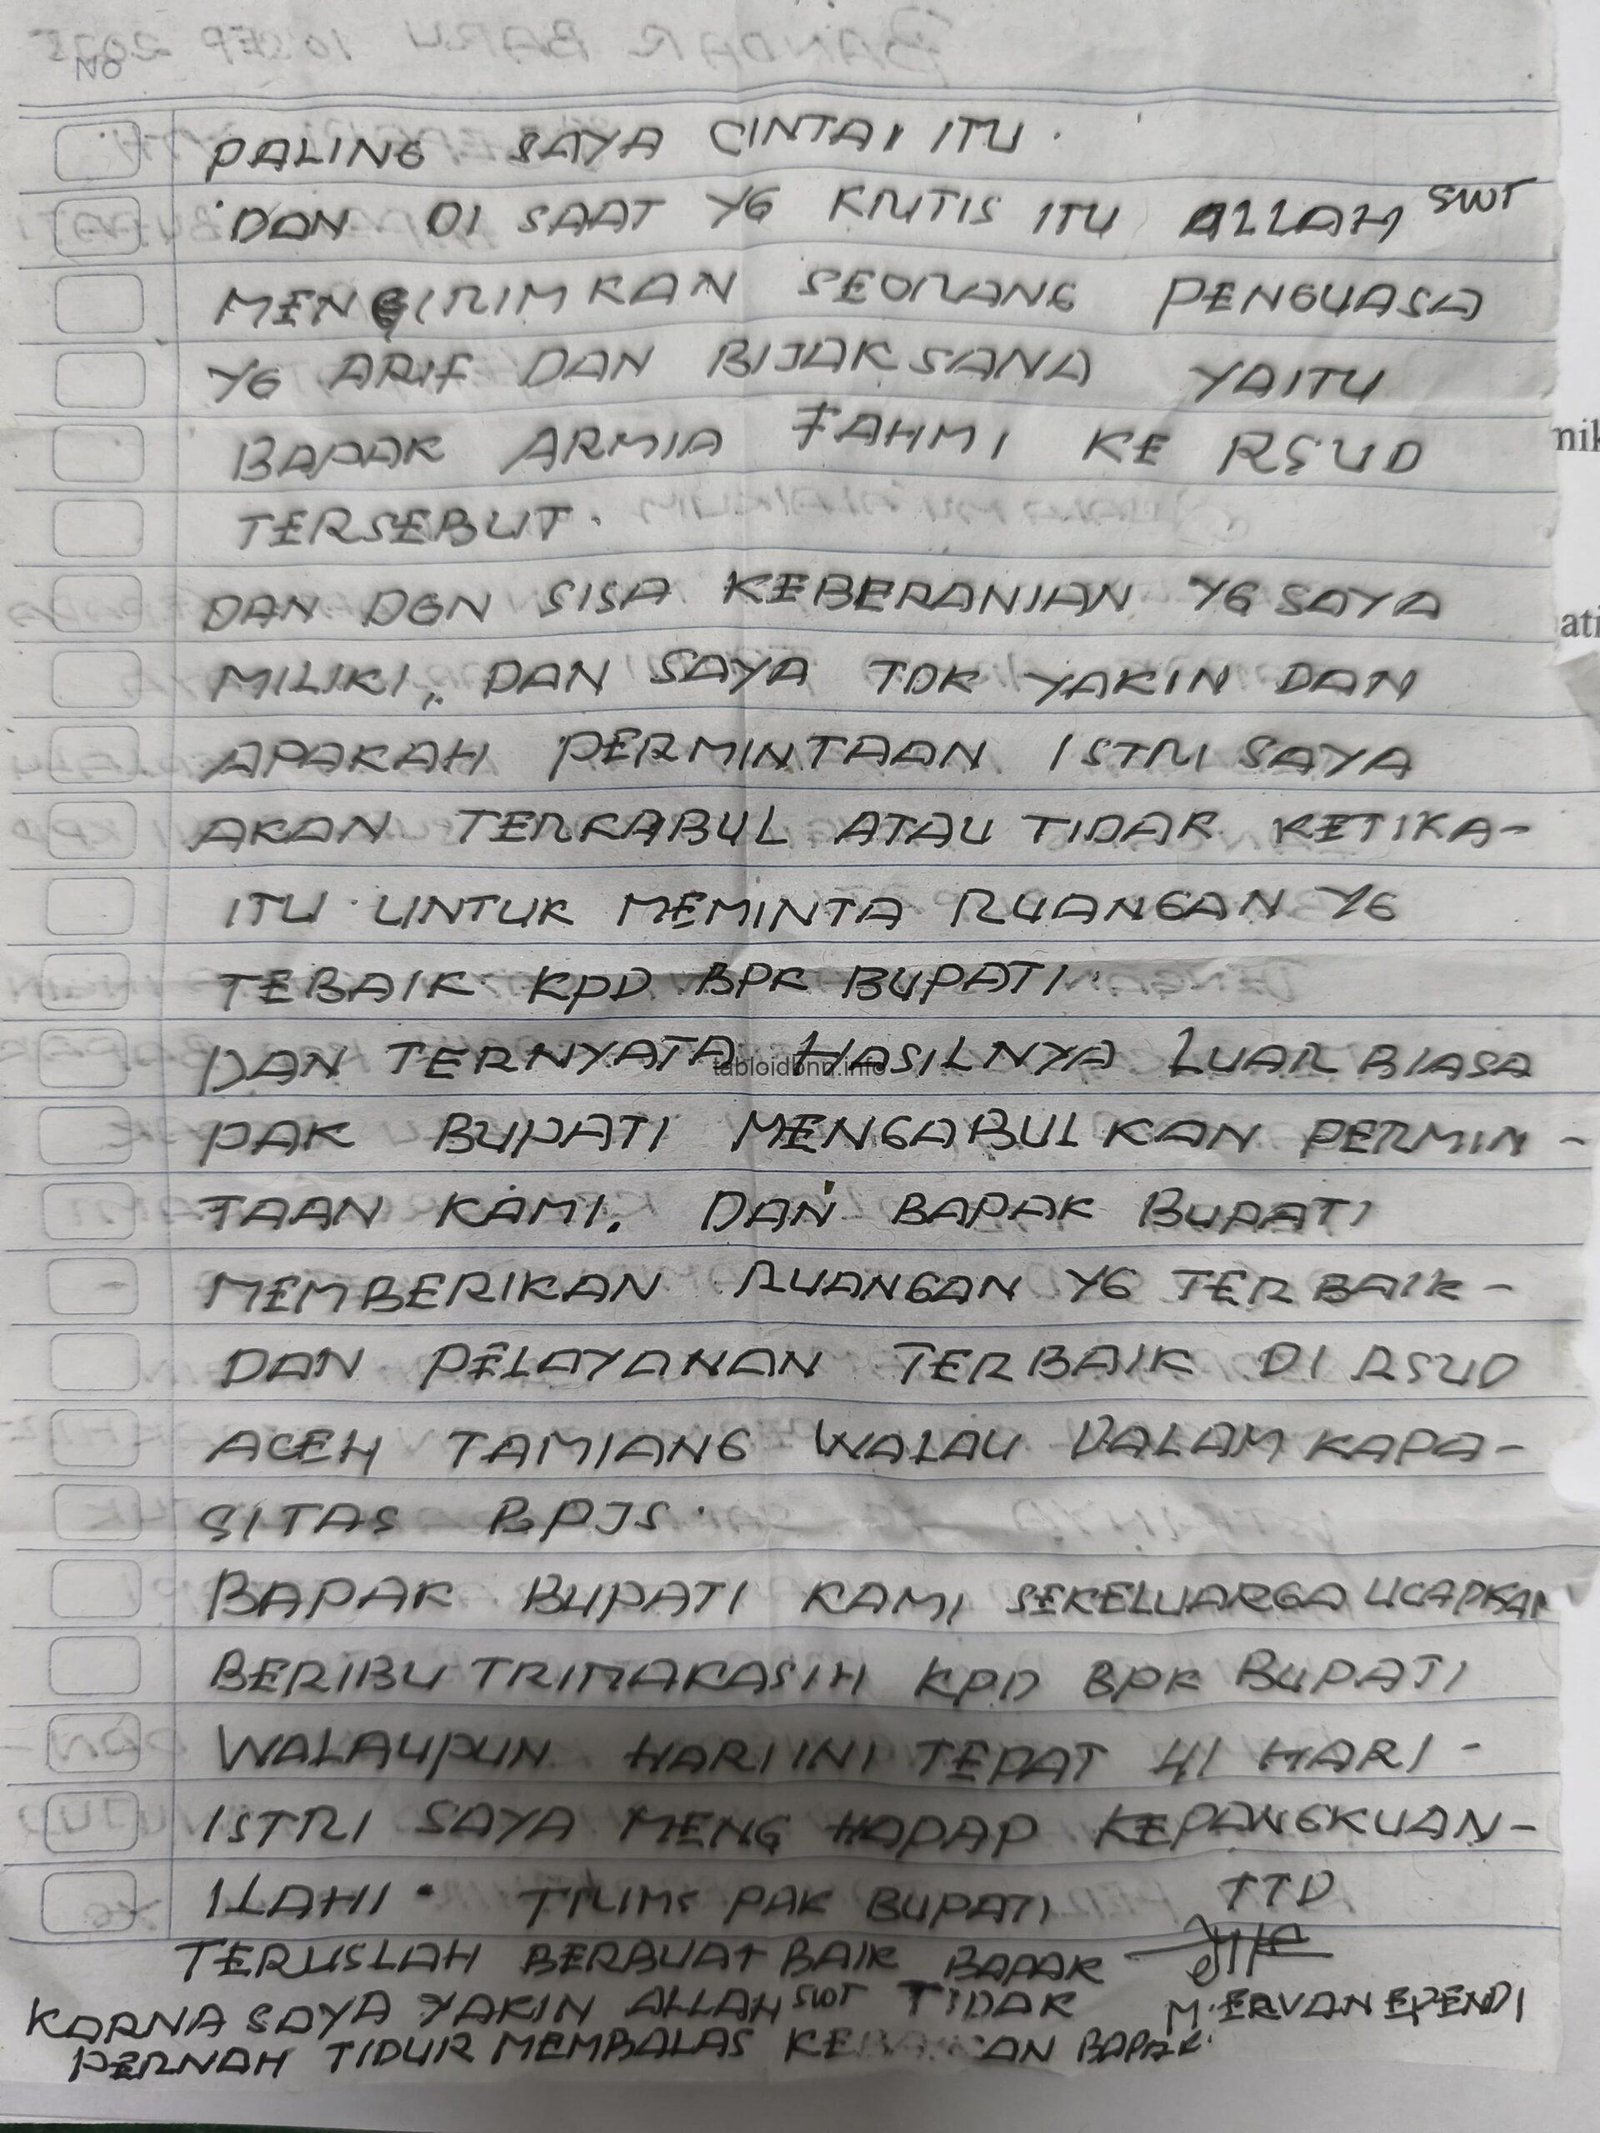 PALING SAYA CINTAI ITU.
DAN DI SAAT YG KRITIS ITU ALLAH SWT
MENGIRIMKAN SEORANG PENGUASA
YG ARIF DAN BIJAKSANA YAITU
BAPAK ARMIA FAHMI KE RSUD
TERSEBUT.
DAN DGN SISA KEBERANIAN YG SAYA
MILIKI, DAN SAYA TDK YAKIN DAN
APAKAH PERMINTAAN ISTRI SAYA
AKAN TERKABUL ATAU TIDAK KETIKA-
ITU UNTUK MEMINTA RUANGAN YG
TEBAIK KPD BPK BUPATI.
DAN TERNYATA HASILNYA LUAR BIASA
tabloidbnn.info
PAK BUPATI MENGABULKAN PERMIN-
TAAN KAMI. DAN BAPAK BUPATI
MEMBERIKAN RUANGAN YG TERBAIK-
DAN PELAYANAN TERBAIK DI RSUD
ACEH TAMIANG WALAU DALAM KAPA-
SITAS BPJS.
BAPAK BUPATI KAMI SEKELUARGA UCAPKAN
BERIBU TRIMAKASIH KPD BPK BUPATI
WALAUPUN HARI INI TEPAT 41 HARI-
ISTRI SAYA MENG HADAP KEPANGKUAN-
ILAHI. TRIMS PAK BUPATI TTD
TERUSLAH BERBUAT BAIK BAPAK
KARNA SAYA YAKIN ALLAH SWT TIDAK M. ERVAN EPENDI
PERNAH TIDUR MEMBALAS BAPAK.